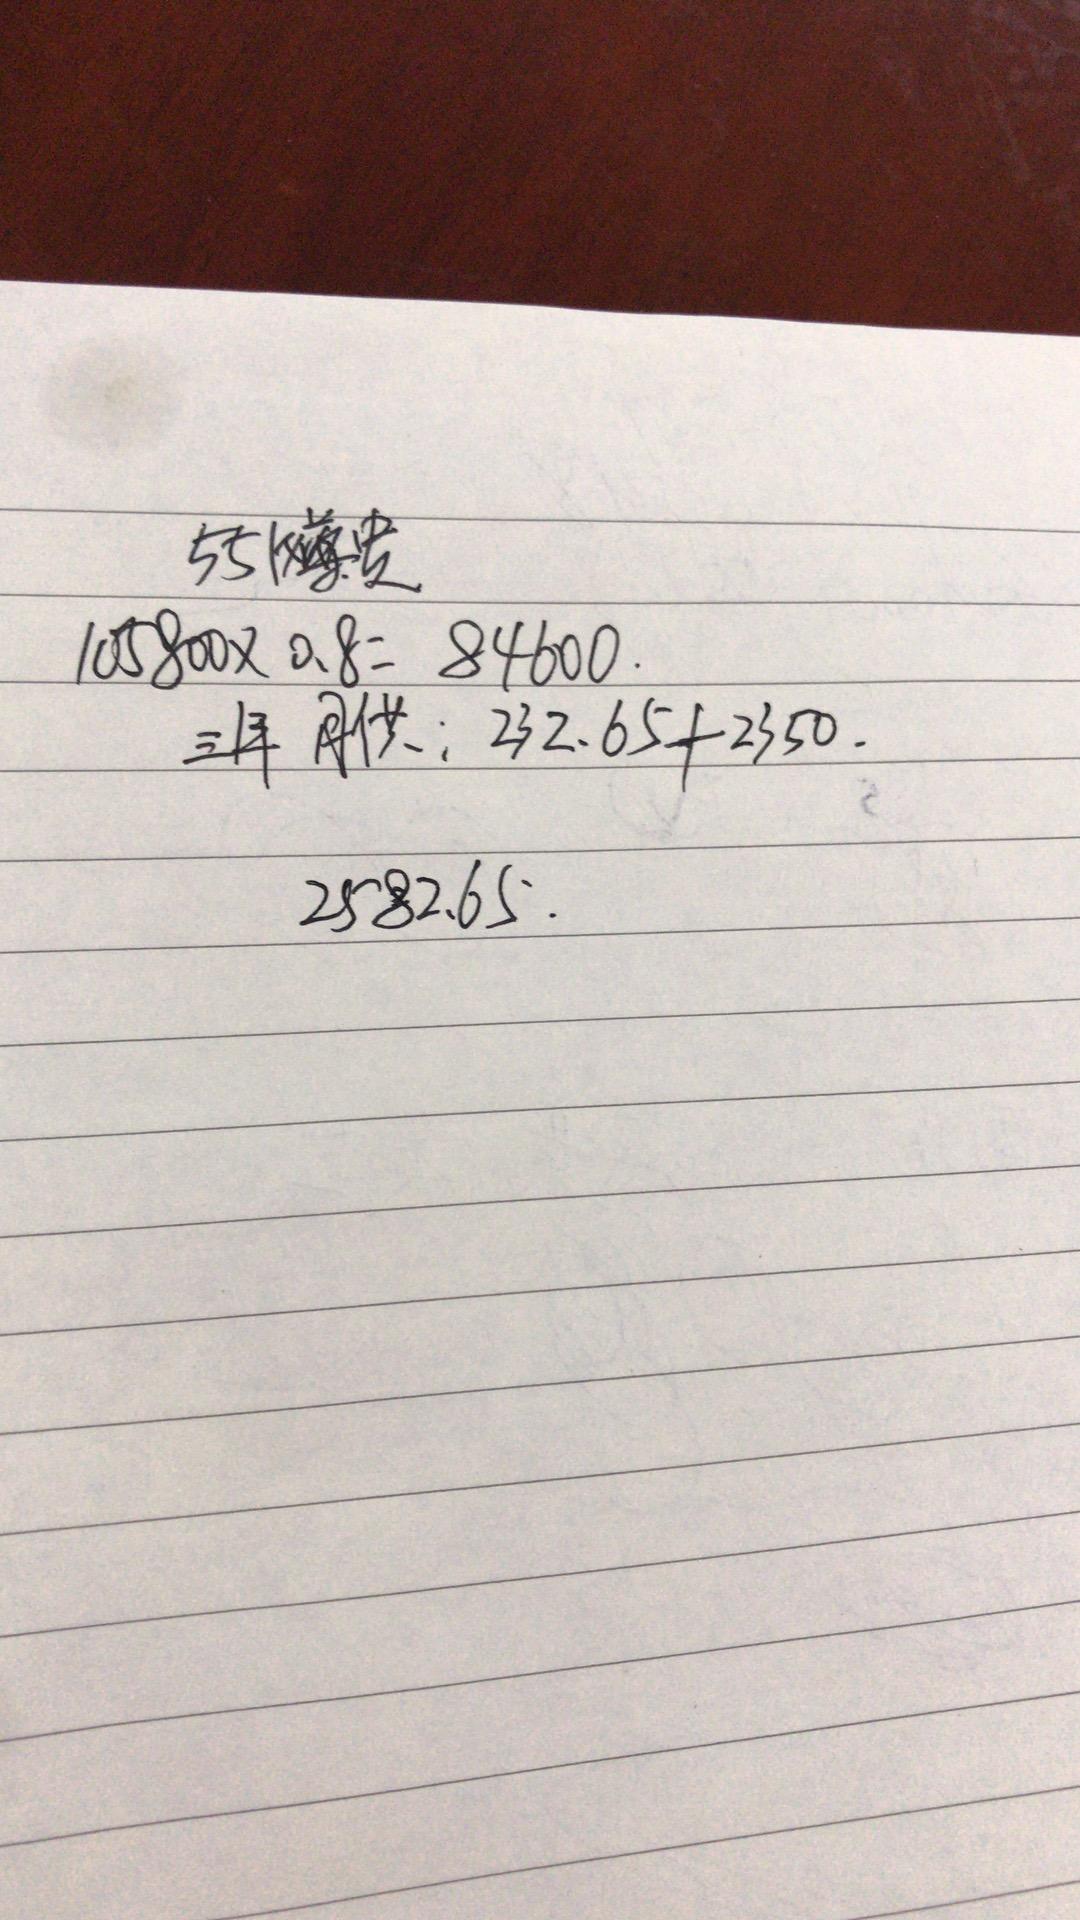 551
105800×0.8=84600.
三年 月供:232.65+2350.
2582.65.